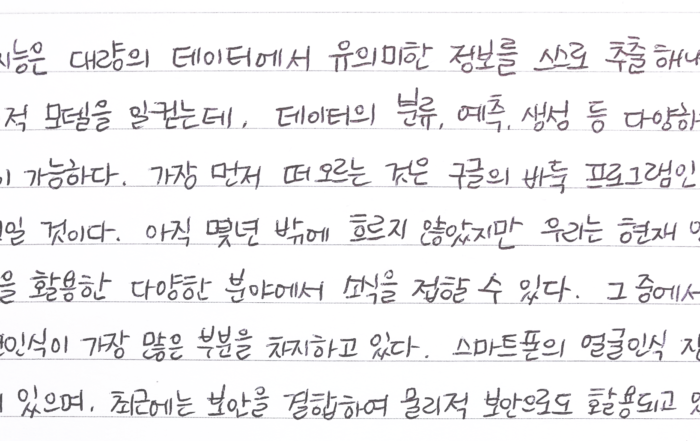 지능은 대량의 데이터에서 유의미한 정보를 스스로 추출해내
적 모델을 일컫는데, 데이터의 분류, 예측, 생성 등 다양하
이 가능하다. 가장 먼저 떠오르는 것은 구글의 바둑 프로그램인
일 것이다. 아직 몇년 밖에 흐르지 않았지만 우리는 현재
을 활용한 다양한 분야에서 소식을 접할 수 있다. 그 중에서
인식이 가장 많은 부분을 차지하고 있다. 스마트폰의 얼굴인식
있으며, 최근에는 보안을 결합하여 물리적 보안으로도 활용되고